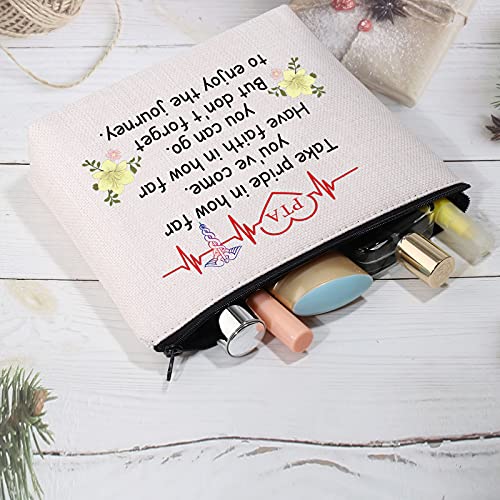 PTA
Take pride in how far
you've come.
Have faith in how far
you can go.
But don't forget
to enjoy the journey.